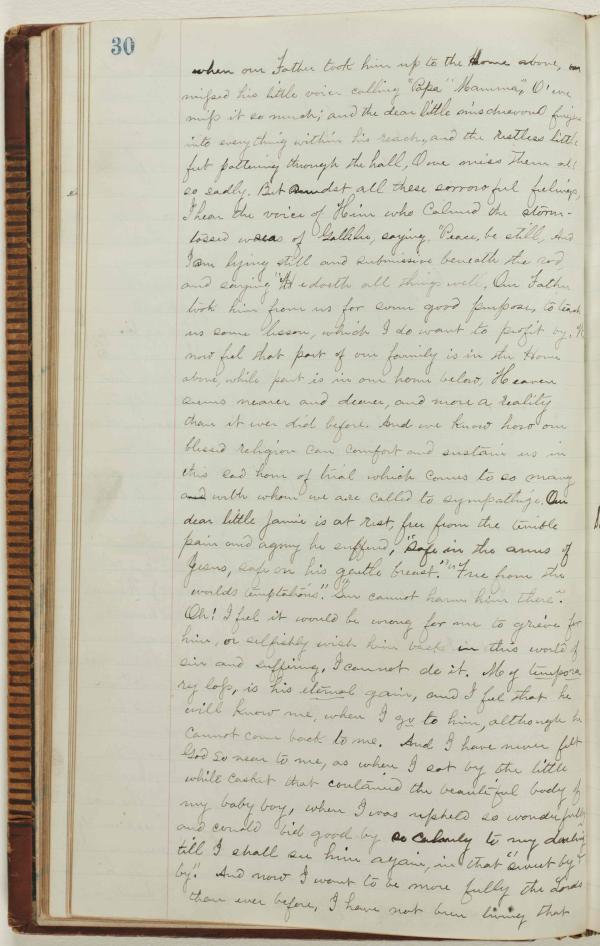 30
when our Father took him up to the Home above, we
missed his little voice calling "Papa" "Mamma", O! we
miss it so much; and the dear little mischievous fingers
into everything within his reach, and the restless little
feet pattering through the hall, O we miss them all
so sadly. But amidst all these sorrowful feelings,
I hear the voice of Him who calmed the storm-
tossed seas of Gallilee, saying. "Peace, be still, And
I am lying still and submissive beneath the rod,
and saying "He doeth all things well. Our Father
took him from us for some good purpose, to teach
us some lesson, which I do want to profit by. We
now feel that part of our family is in the Home
above, while part is in our home below, Heaven
seems nearer and dearer, and more a reality
than it ever did before. And we know how our
blessed religion can comfort and sustain us in
this sad hour of trial which comes to so many
and with whom we are called to sympathize. Our
dear little Jamie is at rest, free from the terrible
pain and agony he suffered, "Safe in the arms of
Jesus, safe on his gentle breast." "Free from the
worlds temptations". "Sin cannot harm him there".
Oh! I feel it would be wrong for me to grieve for
him, or selfishly wish him back in this world of
sin and suffering, I cannot do it. My tempora
ry loss, is his eternal gain, and I feel that he
will know me, when I go to him, although he
cannot come back to me. And I have never felt
God so near to me, as when I sat by the little
white casket that contained the beautiful body of
my baby boy, when I was upheld so wonderfully
and could bid good by so calmly to my darling
till I shall see him again, in that "sweet by &
by". And now I want to be more fully the Lords
than ever before, I have not been living that